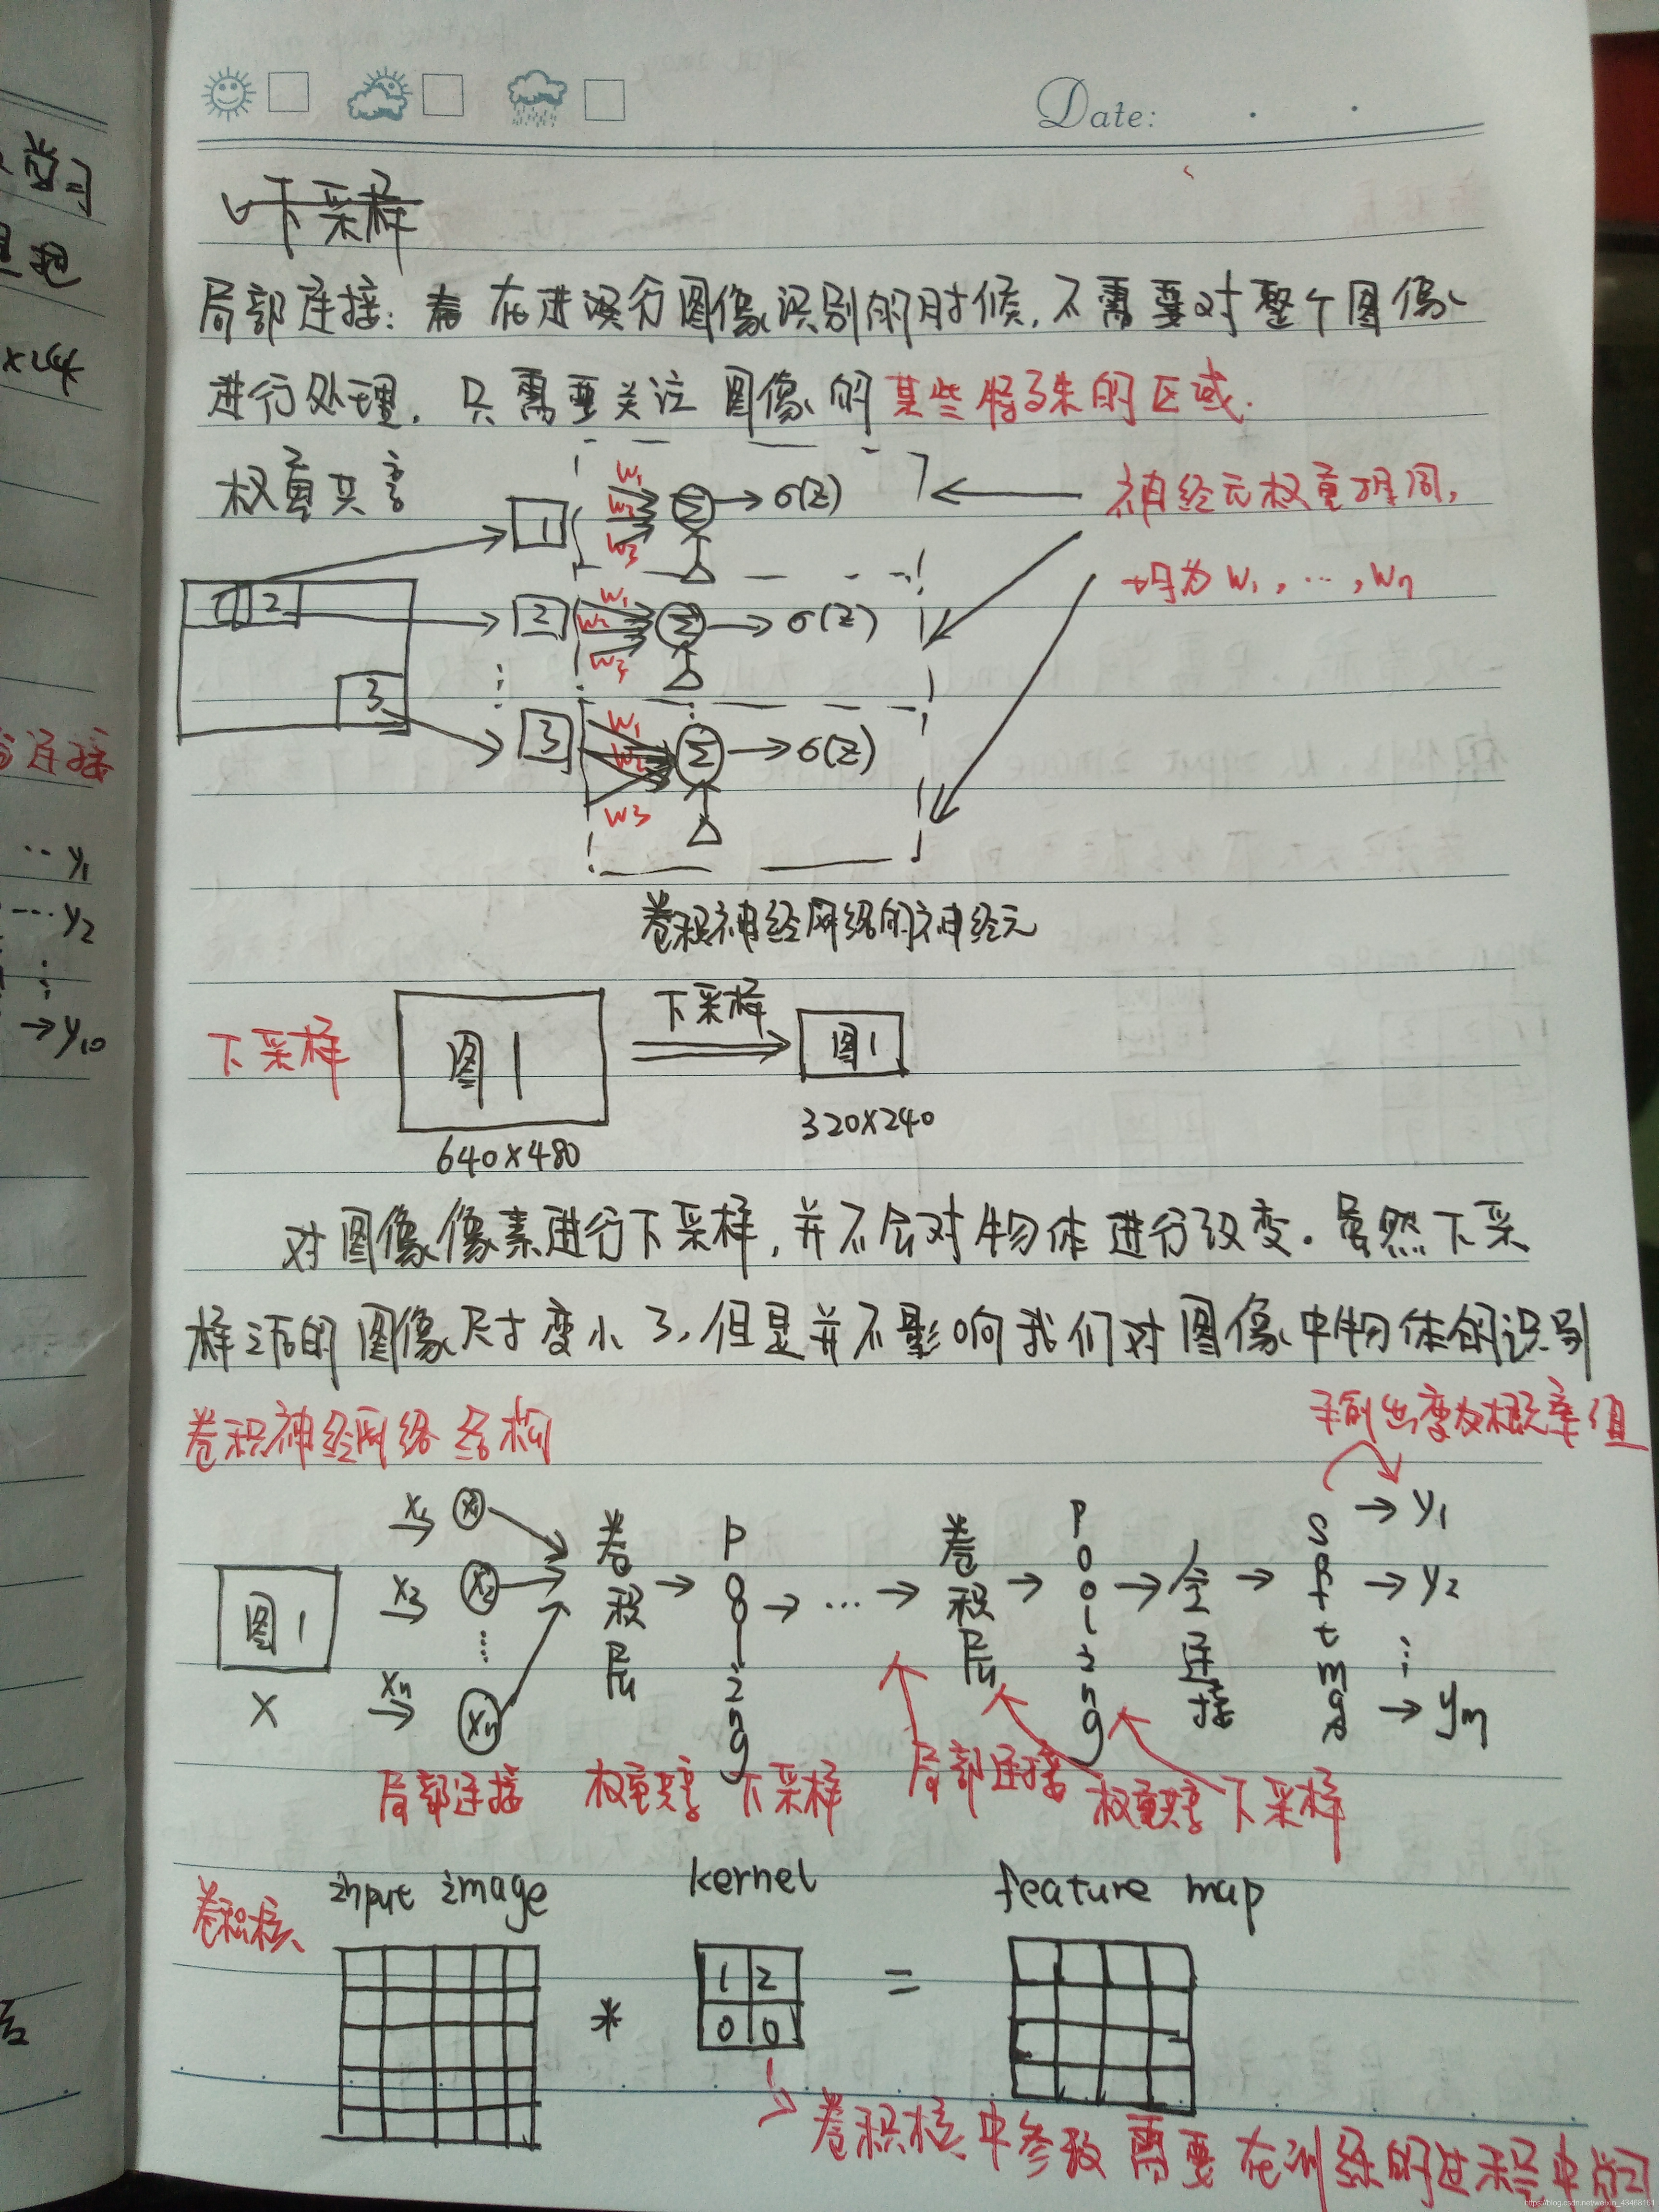 Date:
学习
连接
y1
y2
y10
下采样
局部连接: 在进行图像识别的时候,不需要对整个图像
进行处理,只需要关注图像的某些特殊的区域.
权重共享
1 w1 w2 w3 Σ → σ(z)
神经元权重相同,
均为 w1, ..., wn
1 2 3
2 w1 w2 w3 Σ → σ(z)
3 w1 w2 w3 Σ → σ(z)
卷积神经网络的神经元
下采样 图1 下采样 图1
640×480 320×240
对图像像素进行下采样,并不会对物体进行改变。虽然下采
样之后的图像尺寸变小了,但是并不影响我们对图像中物体的识别
卷积神经网络结构
输出变为概率值
图1 X
x1 x2 xn
x1 x2 xn
卷积层 → Pooling → ... → 卷积层 → Pooling → 全连接 → Softmax
→ y1
→ y2
→ ym
局部连接 权重共享 下采样 局部连接 权重共享 下采样
卷积核 input image kernel feature map
1 2
* =
0 0
卷积核中参数需要在训练的过程中学习
https://blog.csdn.net/weixin_43468161